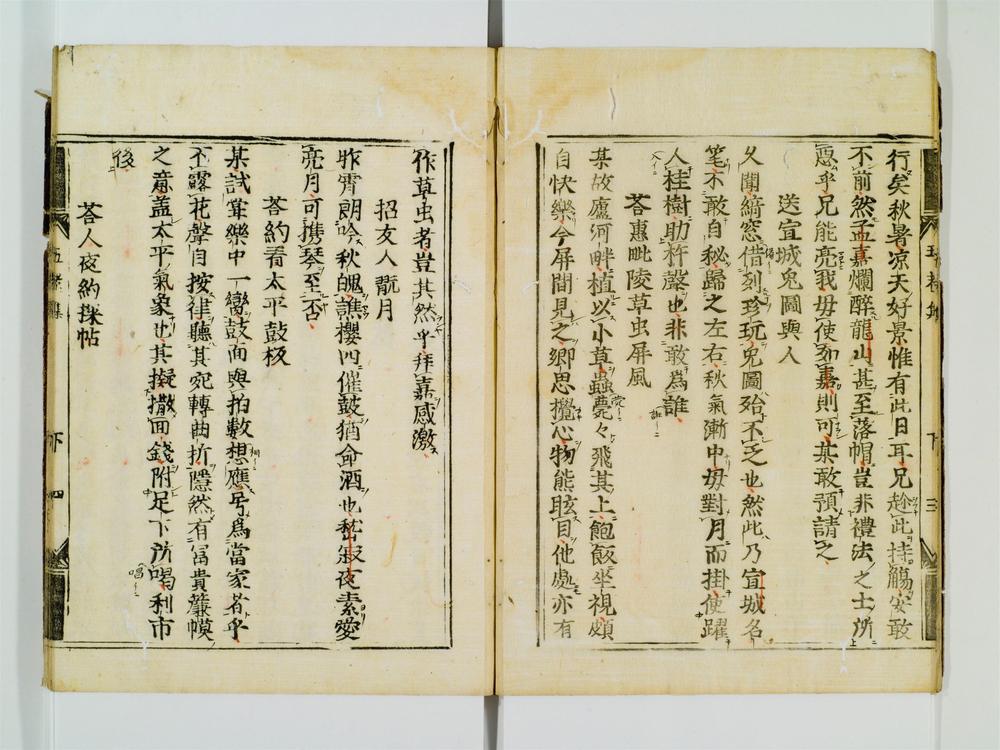 行矣秋暑凉天好景惟有此日耳兄趁此持觴安敢
不前然孟嘉爛醉龍山甚至落帽豈非禮法之士所
惡乎兄能亮我毋使如嘉則可某敢預請之
送宣城兔圖與人
久聞縞窓借列珍玩兔圖殆不乏也然此乃宣城名
笔不敢自秘歸之左右秋氣漸中毋對月而掛使躍
人桂樹助杵聲也非敢爲誰
荅惠毗陵草虫屏風
某故廬河畔植以小草蟲薨々飛其上飽飯坐視頗
自快樂今屏間見之鄉思攪心物態眩目他處亦有
作草虫者豈其然乎拜嘉感激
招友人翫月
昨霄朗吟秋魄譙樓四催鼓猶命酒也愁寂夜素愛
亮月可携琴至否
荅約看太平鼓板
某試筆樂中一鸞鼓面與拍數想應号爲當家者乎
不露花聲自按律聽其宛轉曲折隱然有冨貴簾幙
之意盖太平氣象也其擬撒回錢附足下所喝利市
後
荅人夜約採帖
下 三
下 四